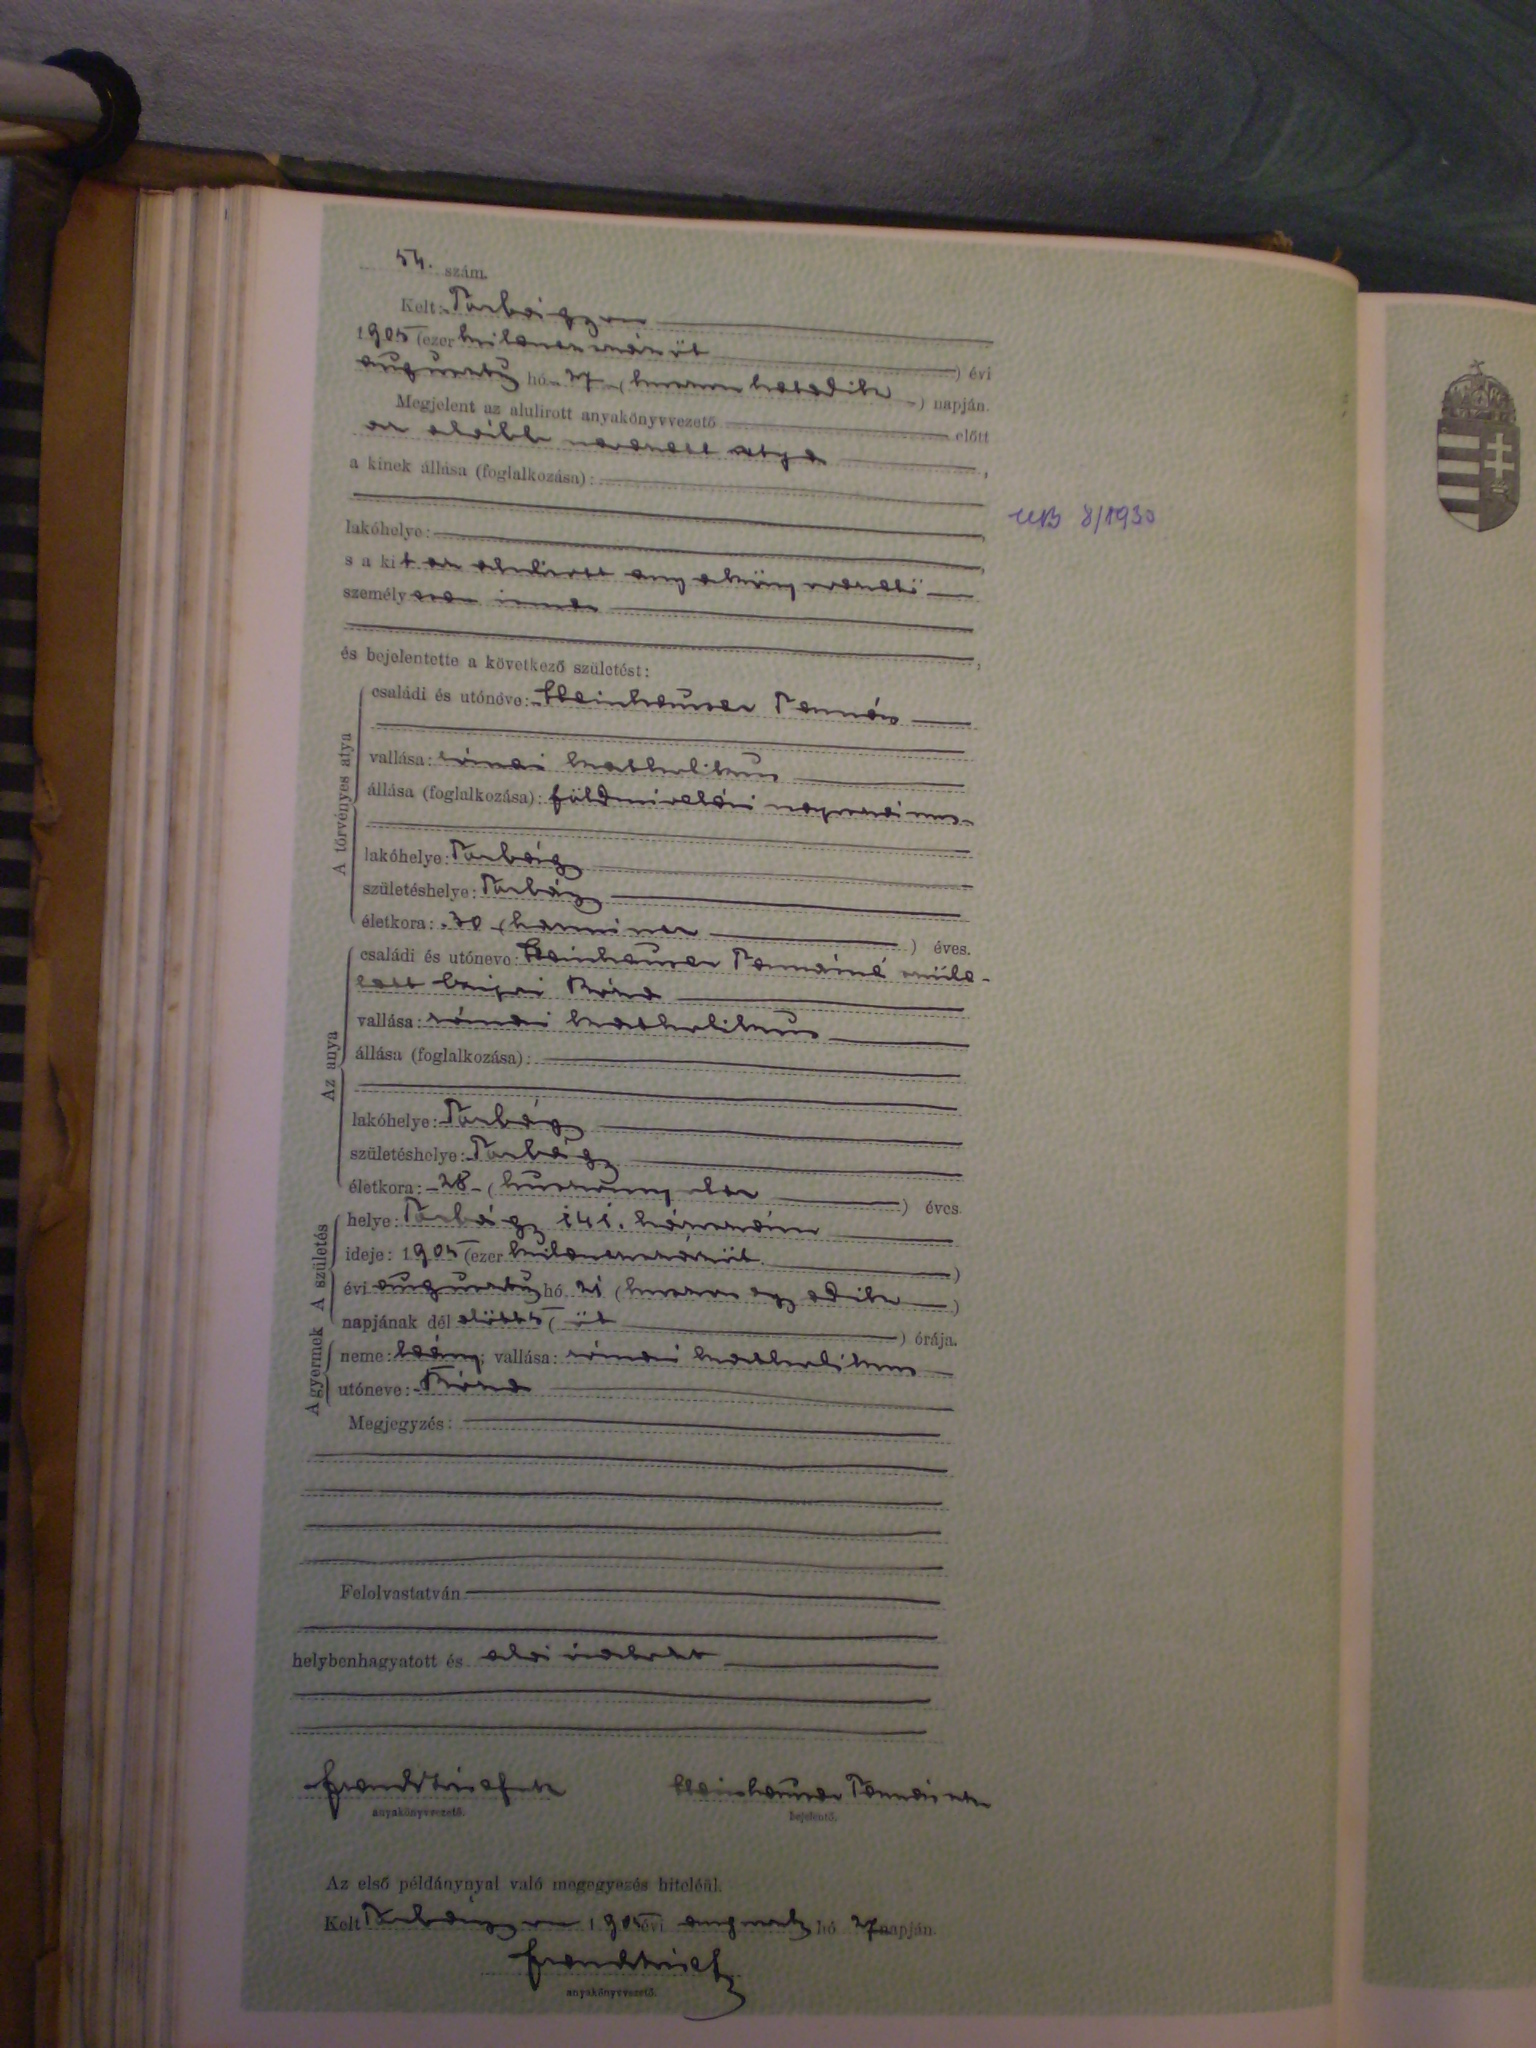 54. szám.
Kelt: Torbágyon
1905 (ezer kilencszázöt ) évi
augusztus hó 27 ( huszonhetedike ) napján.
Megjelent az alulirott anyakönyvvezető előtt
az alább nevezett atya ,
a kinek állása (foglalkozása):
lakóhelye:
s a kit az alulirott anyakönyvvezető
személyesen ismer
és bejelentette a következő születést:
A törvényes atya
családi és utóneve: Steinhauser Tamás
vallása: római katholikus
állása (foglalkozása): földmivelési napszámos
lakóhelye: Torbágy
születéshelye: Torbágy
életkora: 30 ( harmincz ) éves.
Az anya
családi és utóneve: Steinhauser Tamásné szüle-
tett Rózsa
vallása: római katholikus
állása (foglalkozása):
lakóhelye: Torbágy
születéshelye: Torbágy
életkora: 28 ( huszonnyolcz ) éves.
A születés
helye: Torbágy 141. házszám
ideje: 1905 (ezer kilencszázöt )
évi augusztus hó 21 ( huszonegyedike )
napjának dél előtt 5 ( öt ) órája.
A gyermek
neme: leány; vallása: római katholikus
utóneve: Rózsa
Megjegyzés:
Felolvastatván
helybenhagyatott és aláiratott
anyakönyvvezető.
Steinhauser Tamás
bejelentő.
Az első példánynyal való megegyezés hiteléül.
Kelt Torbágyon 1905 évi augusztus hó 27 napján.
anyakönyvvezető.
8/1930